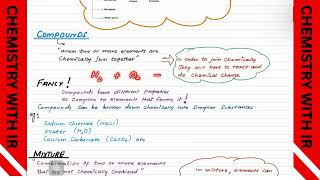 CHEMISTRY WITH IR
COMPOUNDS
"when two or more elements are
Chemically Join together"
In order to join Chemically
They will have to react and
do Chemical Change
FANCY!
Compounds have different properties
as Compare to elements that forming it!
Compounds can be broken down Chemically into Simpler Substances.
Sodium Chloride (NaCl)
Water (H₂O)
Calcium Carbonate (CaCO₃) etc
MIXTURE
Combination of two or more elements
that are not chemically Combined"
In mixture element can
CHEMISTRY WITH IR